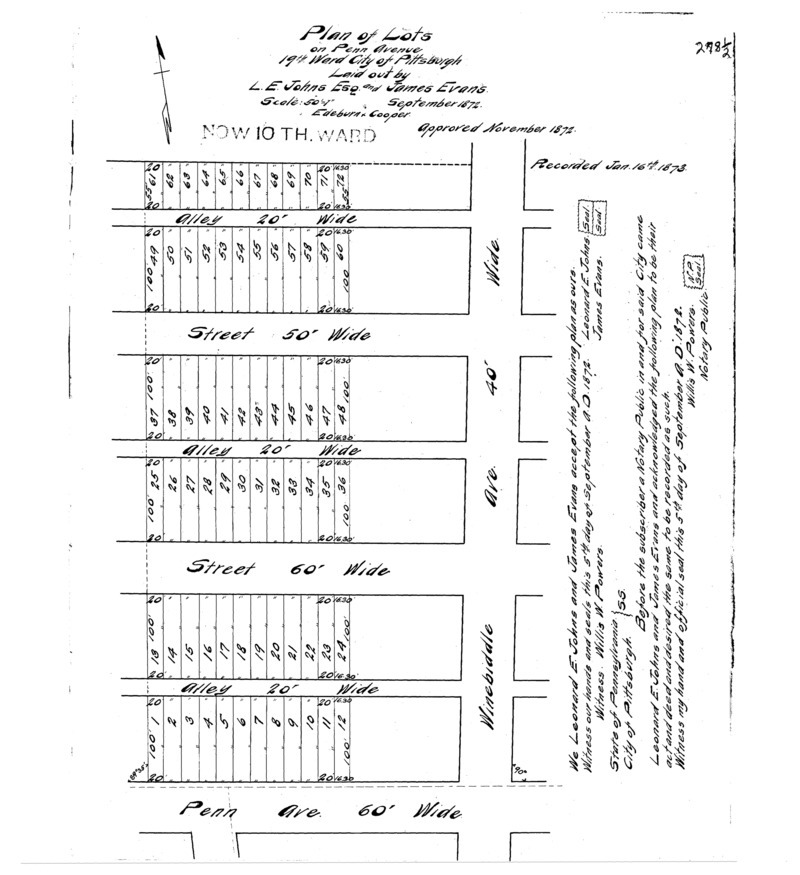 278 1/2
Plan of Lots
on Penn Avenue
19th Ward City of Pittsburgh
Laid out by
L. E. Johns Esq. and James Evans.
Scale: 50'=1" September 1872.
Edeburn & Cooper
NOW 10 TH. WARD
Approved November 1872.
Recorded Jan. 16th 1873.
20 20 16.30
55 61 62 63 64 65 66 67 68 69 70 71 72 55
20 20 16.30
Alley 20' Wide
20 20 16.30
100 49 50 51 52 53 54 55 56 57 58 59 60 100
20 20 16.30
Street 50' Wide
20 20 16.30
100' 100'
37 38 39 40 41 42 43 44 45 46 47 48
20 20 16.30
Alley 20' Wide
20 20 16.30
100 25 26 27 28 29 30 31 32 33 34 35 36 100
20 20 16.30
Street 60' Wide
20 20 16.30
100' 100'
13 14 15 16 17 18 19 20 21 22 23 24
20 20 16.30
Alley 20' Wide
20 20 16.30
100' 1 2 3 4 5 6 7 8 9 10 11 12 100'
20 20 16.30
90°
Penn Ave. 60' Wide
Winebiddle Ave. 40' Wide
We Leonard E. Johns and James Evans accept the following plan as ours.
Witness our hands and seals this 5th day of September A.D. 1872. Leonard E. Johns Seal
Witness Willis W. Powers. James Evans. Seal
State of Pennsylvania } SS.
City of Pittsburgh.
Before the subscriber a Notary Public in and for said City came
Leonard E. Johns and James Evans and acknowledged the following plan to be their
act and deed and desired the same to be recorded as such.
Witness my hand and official seal this 5th day of September A.D. 1872.
Willis W. Powers. N.P. Seal
Notary Public.